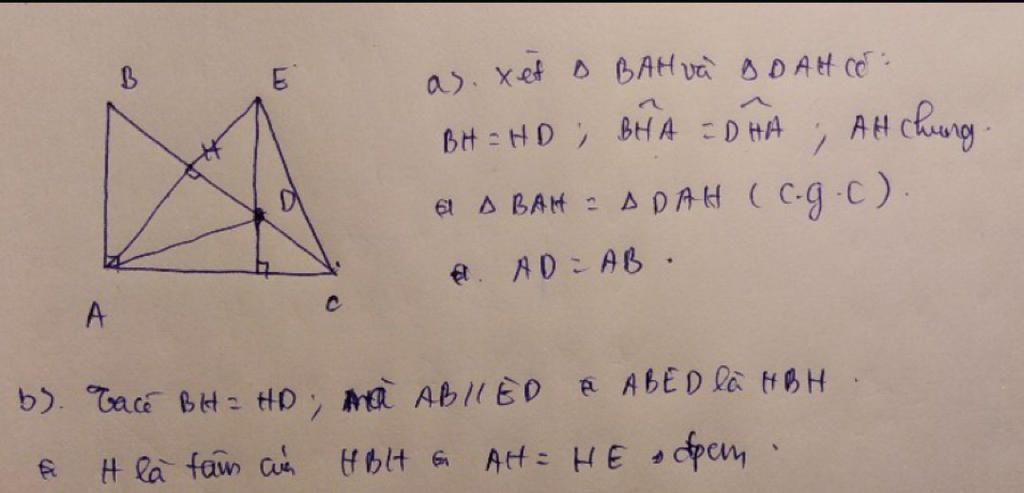 B
E
H
D
A
C
a). Xét Δ BAH và Δ DAH có:
BH = HD ; BHA = DHA ; AH chung.
Δ BAH = Δ DAH (c.g.c).
AD = AB.
b). Ta có BH = HD; mà AB // ED ABED là HBH.
H là tâm của HBH AH = HE đpcm.